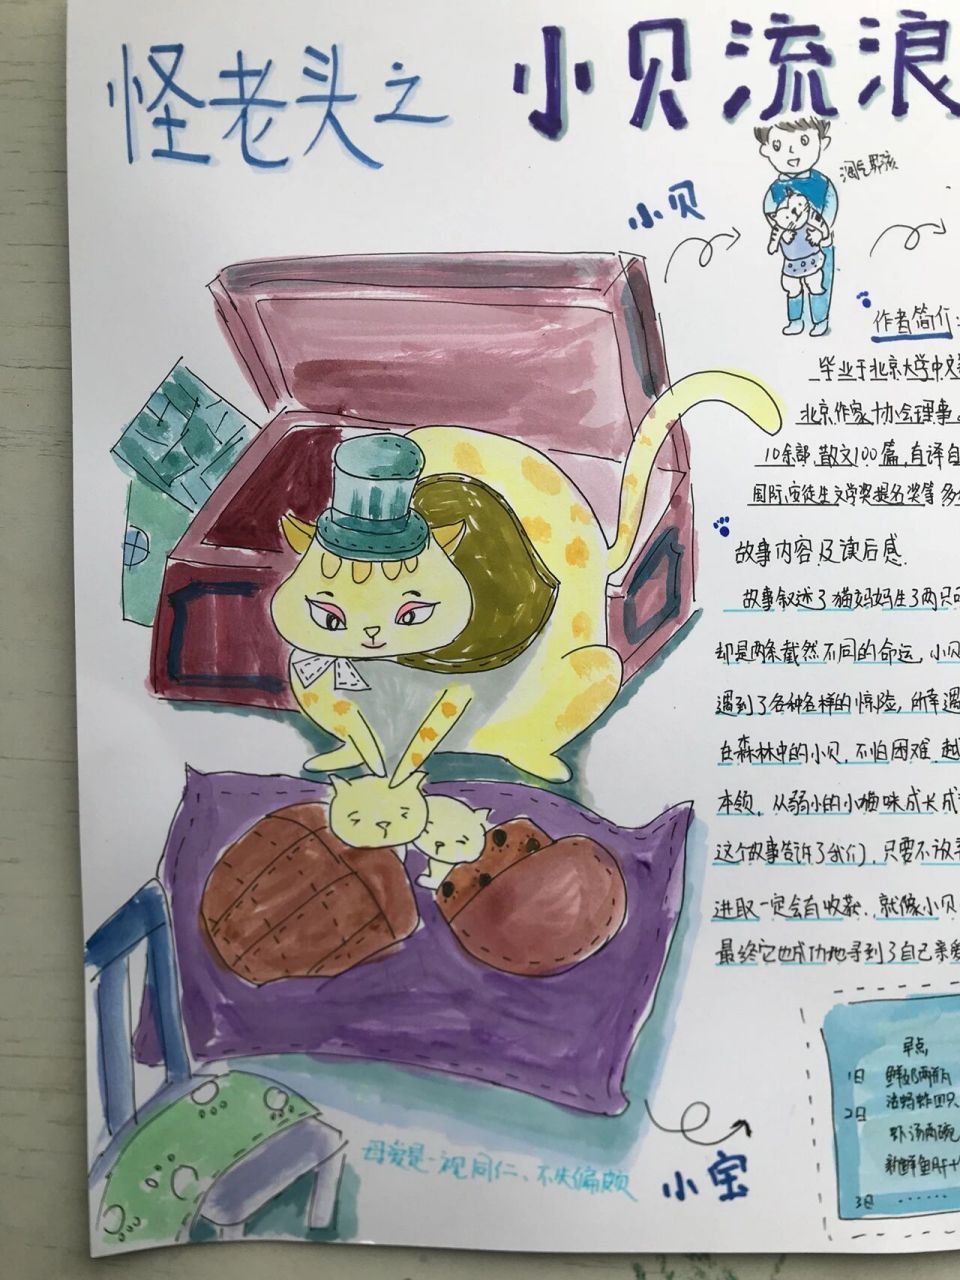 怪老头之
小贝流浪
淘气男孩
小贝
作者简介:
毕业于北京大学中文
北京作家协会理事。
10余部,散文100篇,自译自
国际安徒生文学奖提名奖等多
故事内容及读后感.
故事叙述了猫妈妈生了两只可
却是两条截然不同的命运,小贝
遇到了各种各样的惊险,所幸遇
在森林中的小贝,不怕困难,
本领,从弱小的小猫咪成长成
这个故事告诉了我们,只要不放弃
进取一定会有收获.就像小贝
最终它也成功地寻到了自己亲爱
早点
1日 鲜奶两瓶
2日 活蚂蚱四只
虾汤两碗
新鲜鱼肝十
3日 ······
母爱是一视同仁、不失偏颇
小宝